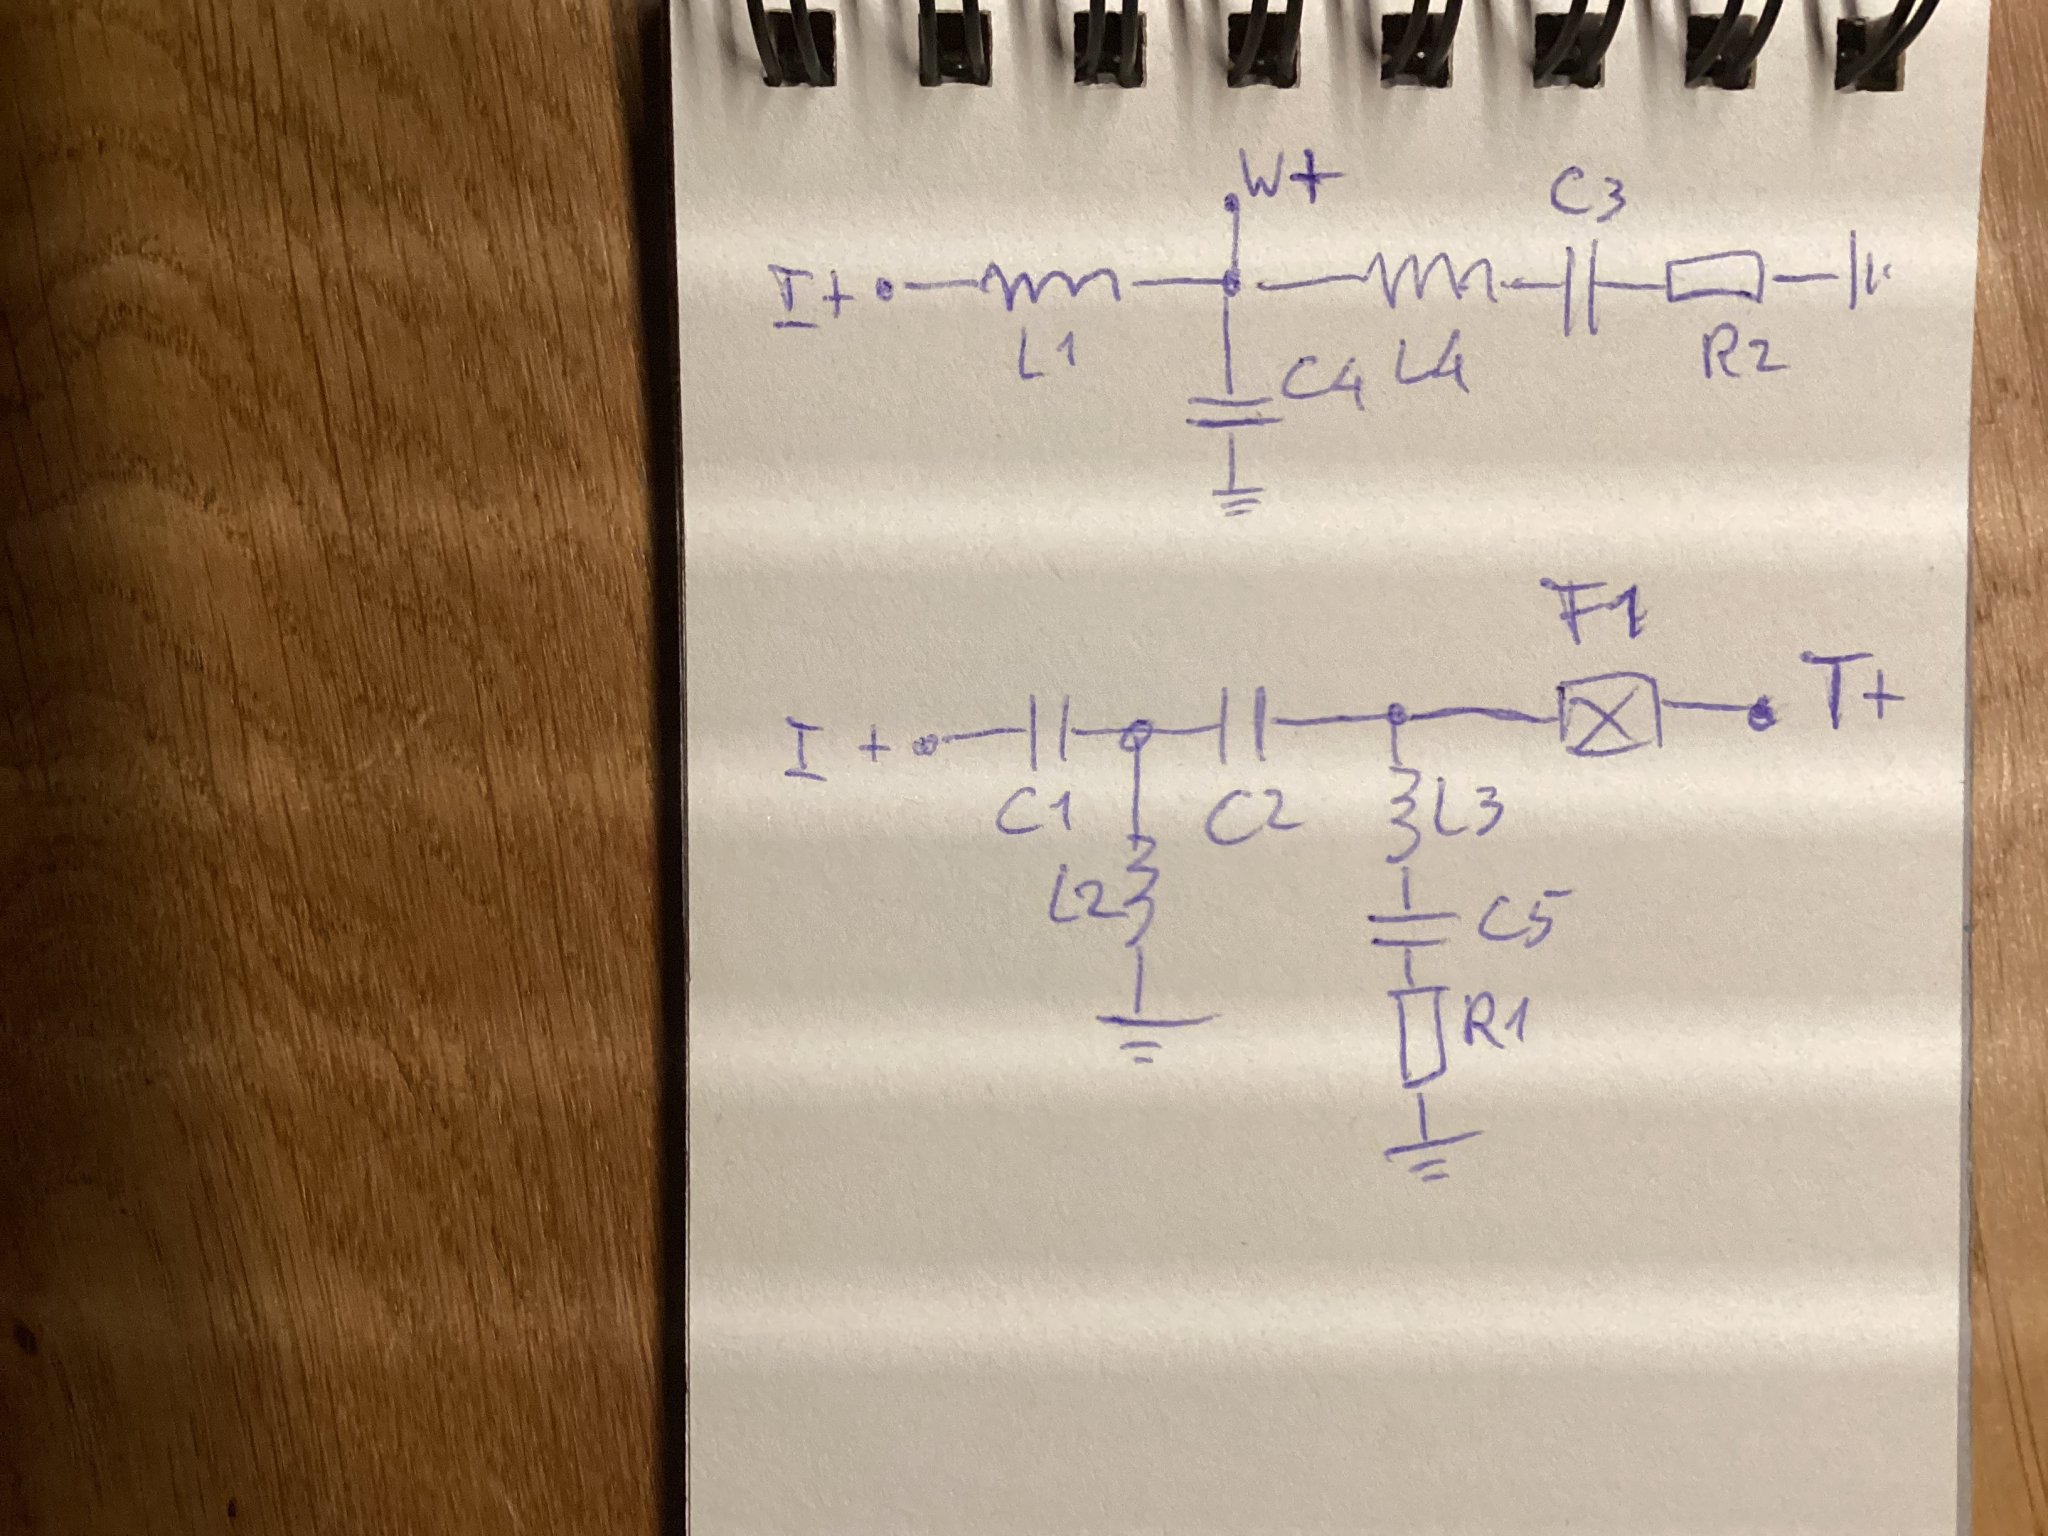 W+ C3
I+ L1 C4 L4 R2
F1
I + C1 C2 L3 T+
L2 C5
R1